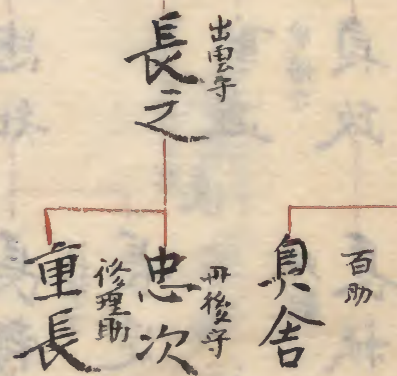 出雲守
長之
百助
丹後守
忠次
修理助
重長